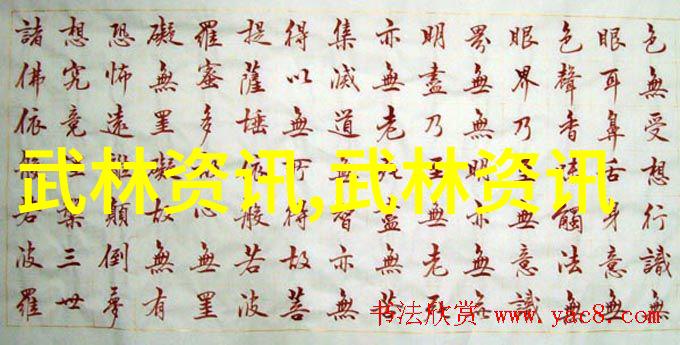 色無受想行識無
眼耳鼻舌身意無
色聲香味觸法無
眼界乃至無意識
界無無明亦無無
明盡乃至無老死
亦無老死盡無苦
集滅道無智亦無
得以無所得故菩
提薩埵依般若波
羅蜜多故心無罣
礙無罣礙故無有
恐怖遠離顛倒夢
想究竟涅槃三世
諸佛依般若波羅
武林资讯,武林资讯
书法欣赏 www.yac8.com